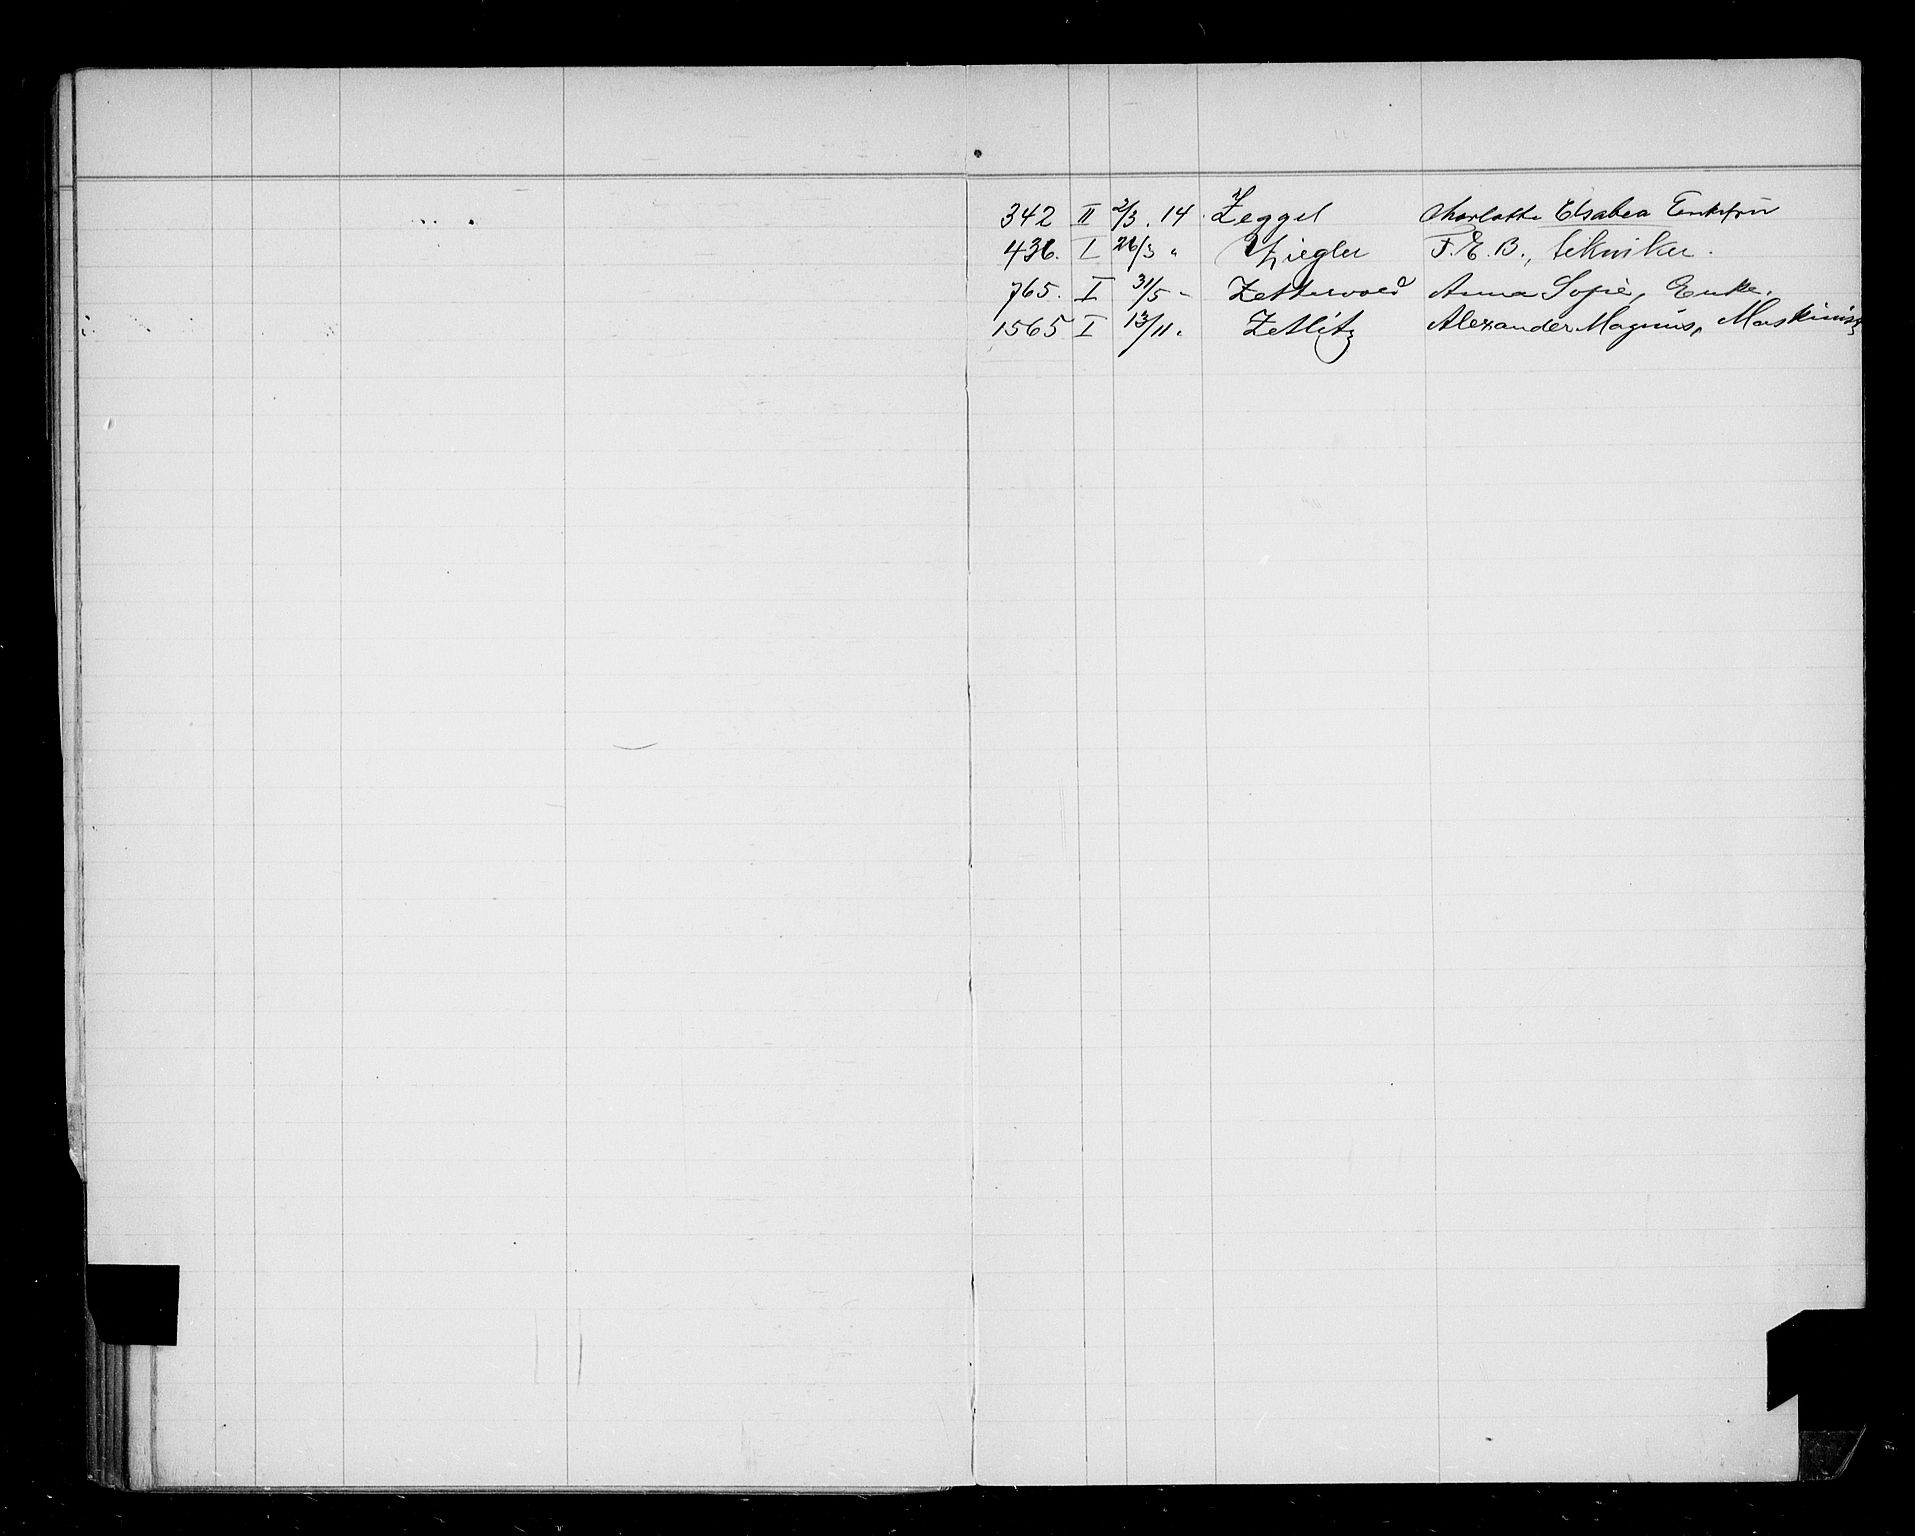 342 II 2/3. 14. Zeggel Charlotte Elsabea Enkefru
436. I 26/3 " Ziegler F. E. B., tekniker.
765. I 31/5 - Zettervold Anna Sofie, Enke.
1565 I 13/11. Zetlitz Alexander Magnus, Maskinist